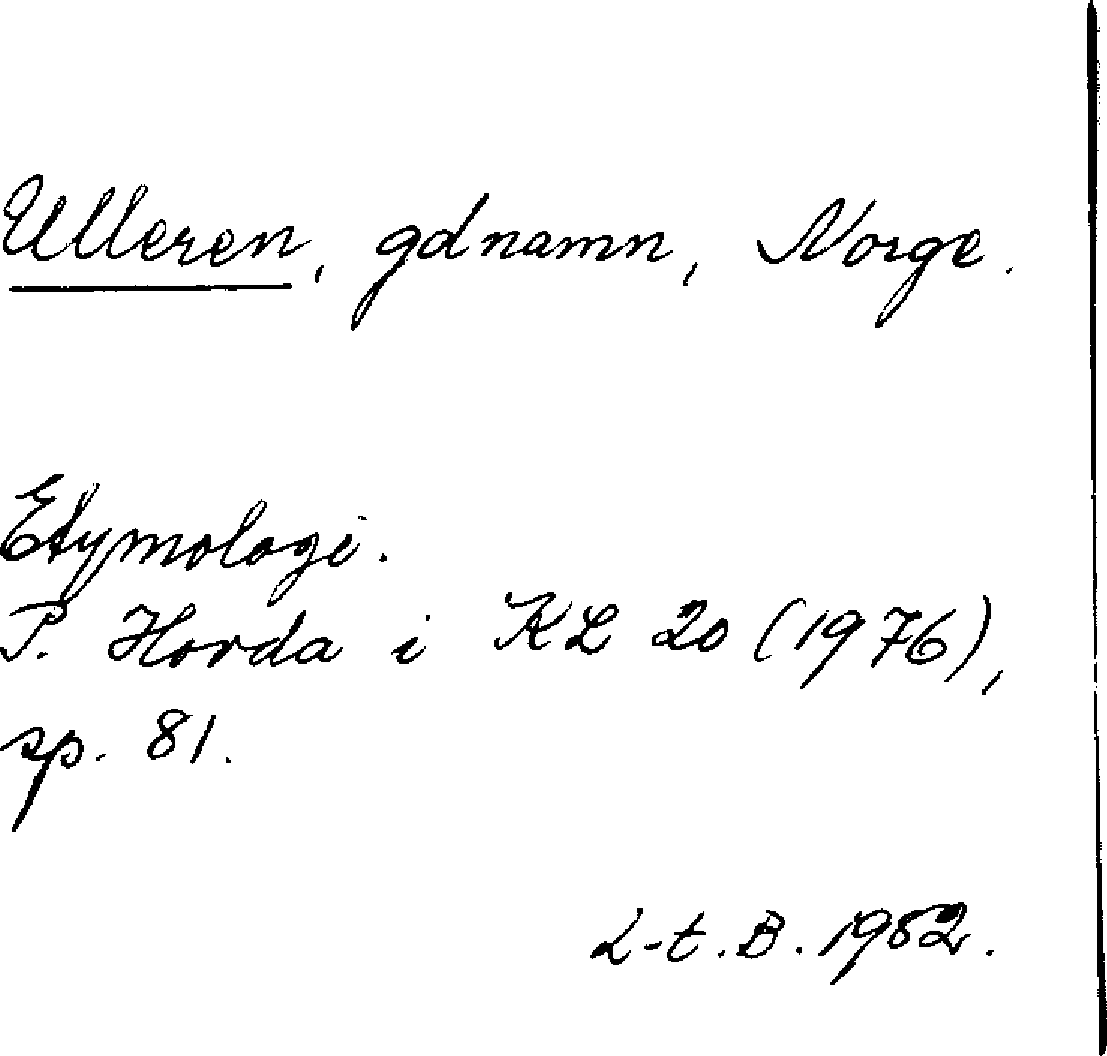 Ulleren, gdnamn, Norge.
Etymologi.
P. Hovda i KL 20 (1976),
sp. 81.
L-t. B. 1982.